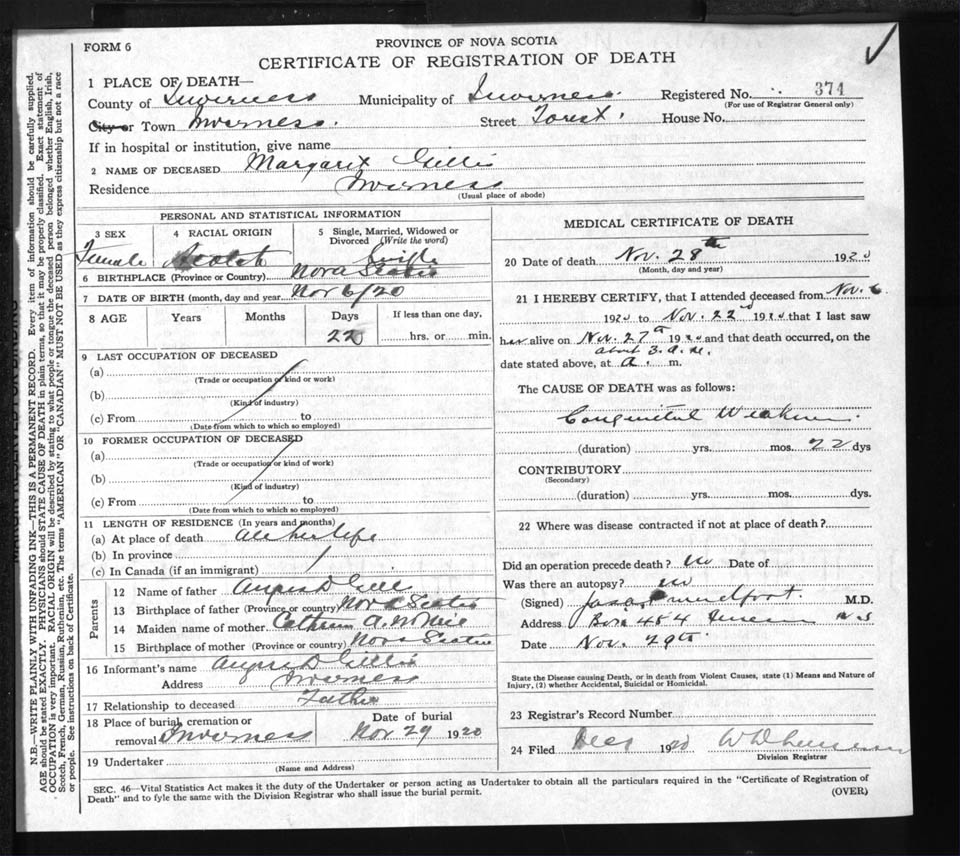 FORM 6
PROVINCE OF NOVA SCOTIA
CERTIFICATE OF REGISTRATION OF DEATH
1 PLACE OF DEATH—
County of Inverness Municipality of Inverness Registered No. 374
(For use of Registrar General only)
City or Town Inverness. Street Forest. House No.
If in hospital or institution, give name
2 NAME OF DECEASED Margaret Gillis
Residence Inverness
(Usual place of abode)
PERSONAL AND STATISTICAL INFORMATION
3 SEX 4 RACIAL ORIGIN 5 Single, Married, Widowed or Divorced (Write the word)
Female Scotch Single
6 BIRTHPLACE (Province or Country) Nova Scotia
7 DATE OF BIRTH (month, day and year) Nov 6/20
8 AGE Years Months Days If less than one day,
22 hrs. or min.
9 LAST OCCUPATION OF DECEASED
(a)
(Trade or occupation or kind or work)
(b)
(Kind of industry)
(c) From to
(Date from which to which so employed)
10 FORMER OCCUPATION OF DECEASED
(a)
(Trade or occupation or kind of work)
(b)
(Kind of industry)
(c) From to
(Date from which to which so employed)
11 LENGTH OF RESIDENCE (In years and months)
(a) At place of death all her life
(b) In province
(c) In Canada (if an immigrant)
Parents
12 Name of father Angus D Gillis
13 Birthplace of father (Province or country) Nova Scotia
14 Maiden name of mother Catherine A. McNeil
15 Birthplace of mother (Province or country) Nova Scotia
16 Informant's name Angus D Gillis
Address Inverness
17 Relationship to deceased Father
18 Place of burial, cremation or removal Inverness
Date of burial Nov 29 1920
19 Undertaker
(Name and Address)
MEDICAL CERTIFICATE OF DEATH
20 Date of death Nov. 28th 1920
(Month, day and year)
21 I HEREBY CERTIFY, that I attended deceased from Nov. 6
1920 to Nov. 22nd 1920 that I last saw
her alive on Nov. 27th 1920 and that death occurred, on the
about 3. a.m.
date stated above, at a. m.
The CAUSE OF DEATH was as follows:
Congenital Weakness
(duration) yrs. mos. 22 dys
CONTRIBUTORY
(Secondary)
(duration) yrs. mos. dys.
22 Where was disease contracted if not at place of death?
Did an operation precede death? no Date of
Was there an autopsy? no
(Signed) M.D.
Address Box 454 Inverness N S
Date Nov. 29th.
State the Disease causing Death, or in death from Violent Causes, state (1) Means and Nature of
Injury, (2) whether Accidental, Suicidal or Homicidal.
23 Registrar's Record Number
24 Filed Dec 1 1920
Division Registrar
SEC. 46—Vital Statistics Act makes it the duty of the Undertaker or person acting as Undertaker to obtain all the particulars required in the "Certificate of Registration of
Death" and to fyle the same with the Division Registrar who shall issue the burial permit.
(OVER)
N.B.—WRITE PLAINLY WITH UNFADING INK—THIS IS A PERMANENT RECORD. Every item of information should be carefully supplied.
AGE should be stated EXACTLY. PHYSICIANS should STATE CAUSE OF DEATH in plain terms, so that it may be properly classified. Exact statement of
OCCUPATION is very important. RACIAL ORIGIN will be described by stating to what people or tongue the deceased person belonged whether English, Irish,
Scotch, French, German, Russian, Ruthenian, etc. The terms "AMERICAN" OR "CANADIAN" MUST NOT BE USED as they express citizenship but not a race
or people. See instructions on back of Certificate.